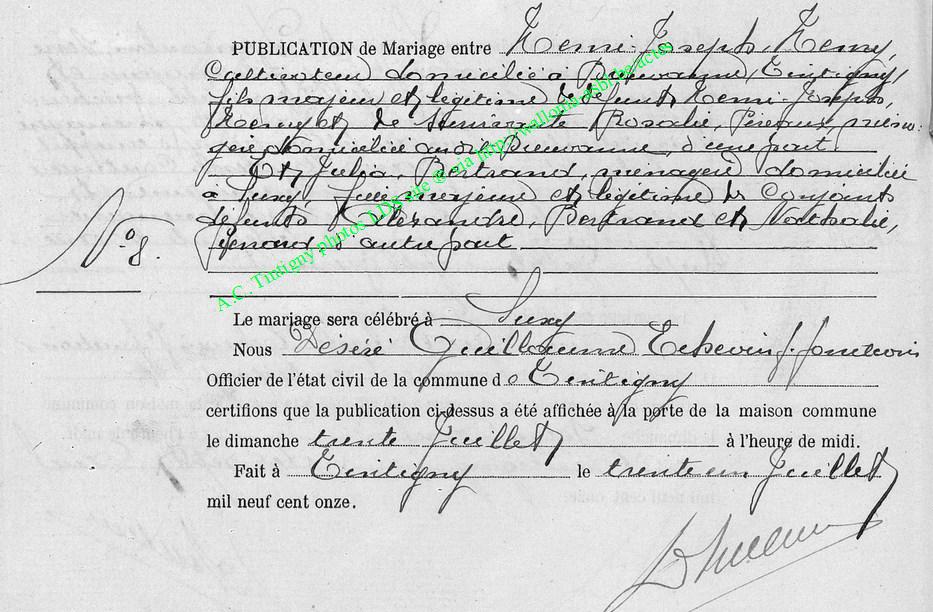 PUBLICATION de Mariage entre Henri-Joseph, Henry,
Cultivateur domicilié à Breuvanne, Tintigny,
fils majeur et légitime de défunt Henri-Joseph,
Henry et de survivante Rosalie, Pereaux, ména-
gère domiciliée audit Breuvanne, d'une part
Et Julia, Bertrand, ménagère domiciliée
à Suxy, fille majeure et légitime des Conjoints
défunts Alexandre, Bertrand et Nathalie,
d'autre part
No 8.
Le mariage sera célébré à Suxy
Nous Désiré Guillaume Echevin f. fonctions
Officier de l'état civil de la commune de Tintigny
certifions que la publication ci-dessus a été affichée à la porte de la maison commune
le dimanche trente Juillet à l'heure de midi.
Fait à Tintigny le trente un Juillet
mil neuf cent onze.
A.C. Tintigny photos LDS site @ via http://wallonia-asbl.be/actes